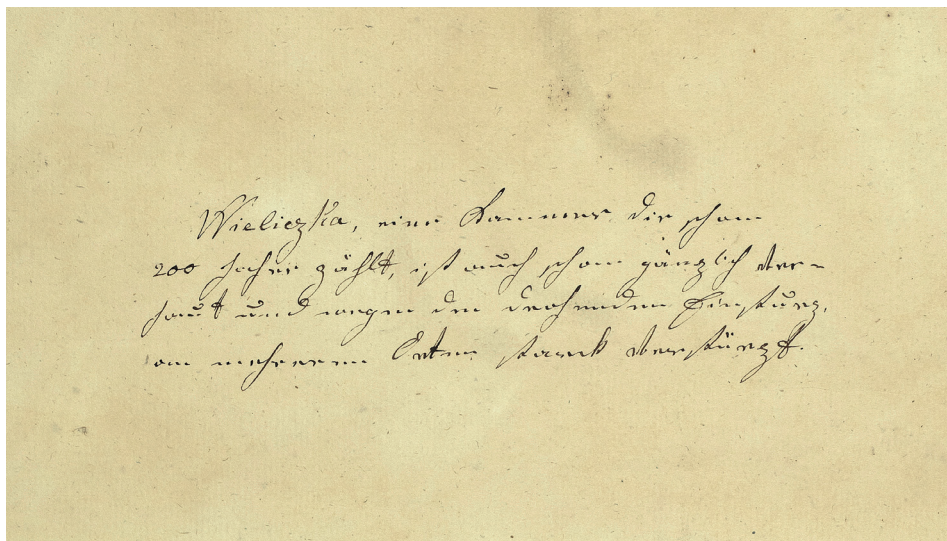 Wieliczka, eine Kammer die schon
200 Jahre zählt, ist auch schon gänzlich ver=
haut und wegen den drohenden Einsturz,
an mehreren Orten stark verstürzt.